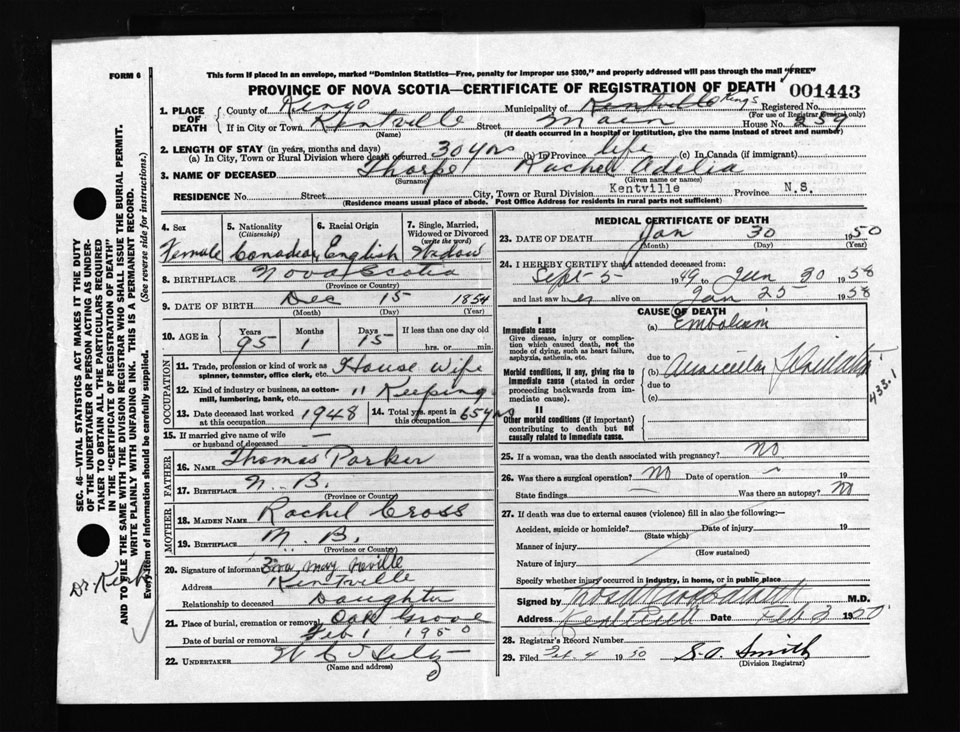 FORM 6
This form if placed in an envelope, marked "Dominion Statistics—Free, penalty for improper use $300," and properly addressed will pass through the mail "FREE"
PROVINCE OF NOVA SCOTIA—CERTIFICATE OF REGISTRATION OF DEATH 001443
1. PLACE OF DEATH
County of Kings Municipality of Kentville Kings Registered No.
(For use of Registrar General only)
If in City or Town Kentville Street Main House No. 259
(Name) (If death occurred in a hospital or institution, give the name instead of street and number)
2. LENGTH OF STAY (in years, months and days)
(a) In City, Town or Rural Division where death occurred 30 yrs (b) In Province life (c) In Canada (if immigrant)
3. NAME OF DECEASED Thorpe Rachel Adelia
(Surname) (Given name or names)
RESIDENCE No. Street City, Town or Rural Division Kentville Province N.S.
(Residence means usual place of abode. Post Office Address for residents in rural parts not sufficient)
4. Sex 5. Nationality (Citizenship) 6. Racial Origin 7. Single, Married, Widowed or Divorced (write the word)
Female Canadian English Widow
8. BIRTHPLACE Nova Scotia
(Province or Country)
9. DATE OF BIRTH Dec 15 1854
(Month) (Day) (Year)
10. AGE in Years Months Days If less than one day old
95 1 15 hrs. or min.
OCCUPATION
11. Trade, profession or kind of work as spinner, teamster, office clerk, etc. House Wife
12. Kind of industry or business, as cotton-mill, lumbering, bank, etc. " Keeping
13. Date deceased last worked at this occupation 1948 14. Total yrs. spent in this occupation 65 yrs
15. If married give name of wife or husband of deceased —
FATHER
16. NAME Thomas Parker
17. BIRTHPLACE N. B.
(Province or Country)
MOTHER
18. MAIDEN NAME Rachel Cross
19. BIRTHPLACE N. B.
(Province or Country)
20. Signature of informant May Neville
Address Kentville
Relationship to deceased Daughter
21. Place of burial, cremation or removal Oak Grove
Date of burial or removal Feb 1 1950
22. UNDERTAKER
(Name and address)
MEDICAL CERTIFICATE OF DEATH
23. DATE OF DEATH Jan 30 1950
(Month) (Day) (Year)
24. I HEREBY CERTIFY that I attended deceased from:
Sept 5 1949 to Jan 30 1950
and last saw her alive on Jan 25 1950
CAUSE OF DEATH
I
Immediate cause
Give disease, injury or complication which caused death, not the mode of dying, such as heart failure, asphyxia, asthenia, etc.
(a) Embolism
due to
Morbid conditions, if any, giving rise to immediate cause (stated in order proceeding backwards from immediate cause).
(b) Auricular Fibrillation
due to
(c)
433.1
II
Other morbid conditions (if important) contributing to death but not causally related to immediate cause.
25. If a woman, was the death associated with pregnancy? No
26. Was there a surgical operation? No Date of operation 19
State findings — Was there an autopsy? No
27. If death was due to external causes (violence) fill in also the following:—
Accident, suicide or homicide? Date of injury 19
(State which)
Manner of injury
(How sustained)
Nature of injury
Specify whether injury occurred in industry, in home, or in public place
Signed by M.D.
Address Kentville Date Feb 3 1950
28. Registrar's Record Number
29. Filed Feb. 4 1950 S.A. Smith
(Division Registrar)
SEC. 46—VITAL STATISTICS ACT MAKES IT THE DUTY OF THE UNDERTAKER OR PERSON ACTING AS UNDERTAKER TO OBTAIN ALL THE PARTICULARS REQUIRED IN THE "CERTIFICATE OF REGISTRATION OF DEATH" AND TO FILE THE SAME WITH THE DIVISION REGISTRAR WHO SHALL ISSUE THE BURIAL PERMIT.
WRITE PLAINLY WITH UNFADING INK. THIS IS A PERMANENT RECORD.
Every item of information should be carefully supplied. (See reverse side for instructions.)
Dr.